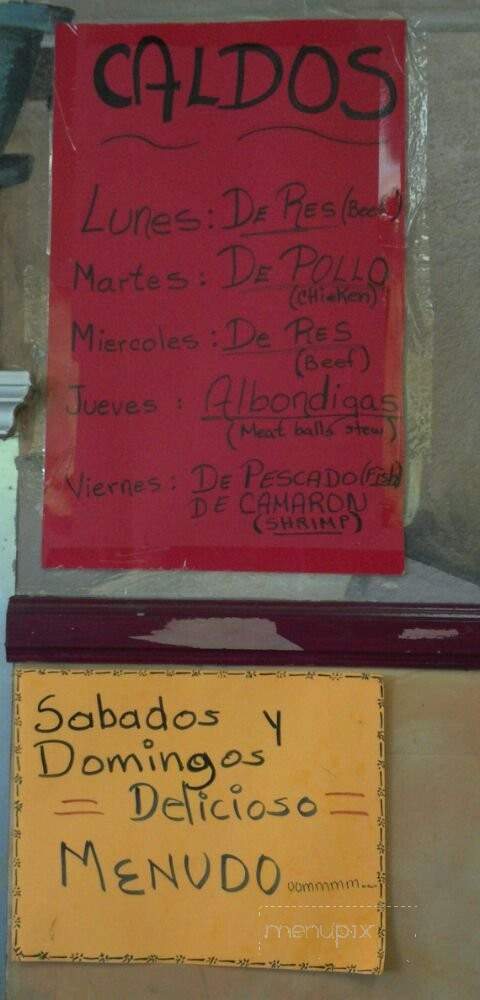 CALDOS
Lunes: De Res (Beef)
Martes: De POLLO
(CHicKen)
Miercoles: De Res
(Beef)
Jueves: Albondigas
(Meat balls stew)
Viernes: De PESCADO (Fish)
DE CAMARON
(SHRIMP)
Sabados y
Domingos
= Delicioso =
MENUDO oommmm...
menupix